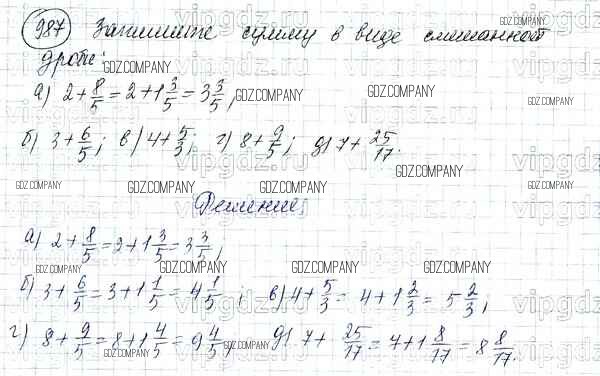 987 Запишите сумму в виде смешанной
дроби:
а) 2 + 8/5 = 2 + 1 3/5 = 3 3/5,
б) 3 + 6/5; в) 4 + 5/3; г) 8 + 9/5; д) 7 + 25/17.
Решение:
а) 2 + 8/5 = 2 + 1 3/5 = 3 3/5,
б) 3 + 6/5 = 3 + 1 1/5 = 4 1/5; в) 4 + 5/3 = 4 + 1 2/3 = 5 2/3,
г) 8 + 9/5 = 8 + 1 4/5 = 9 4/5, д) 7 + 25/17 = 7 + 1 8/17 = 8 8/17.